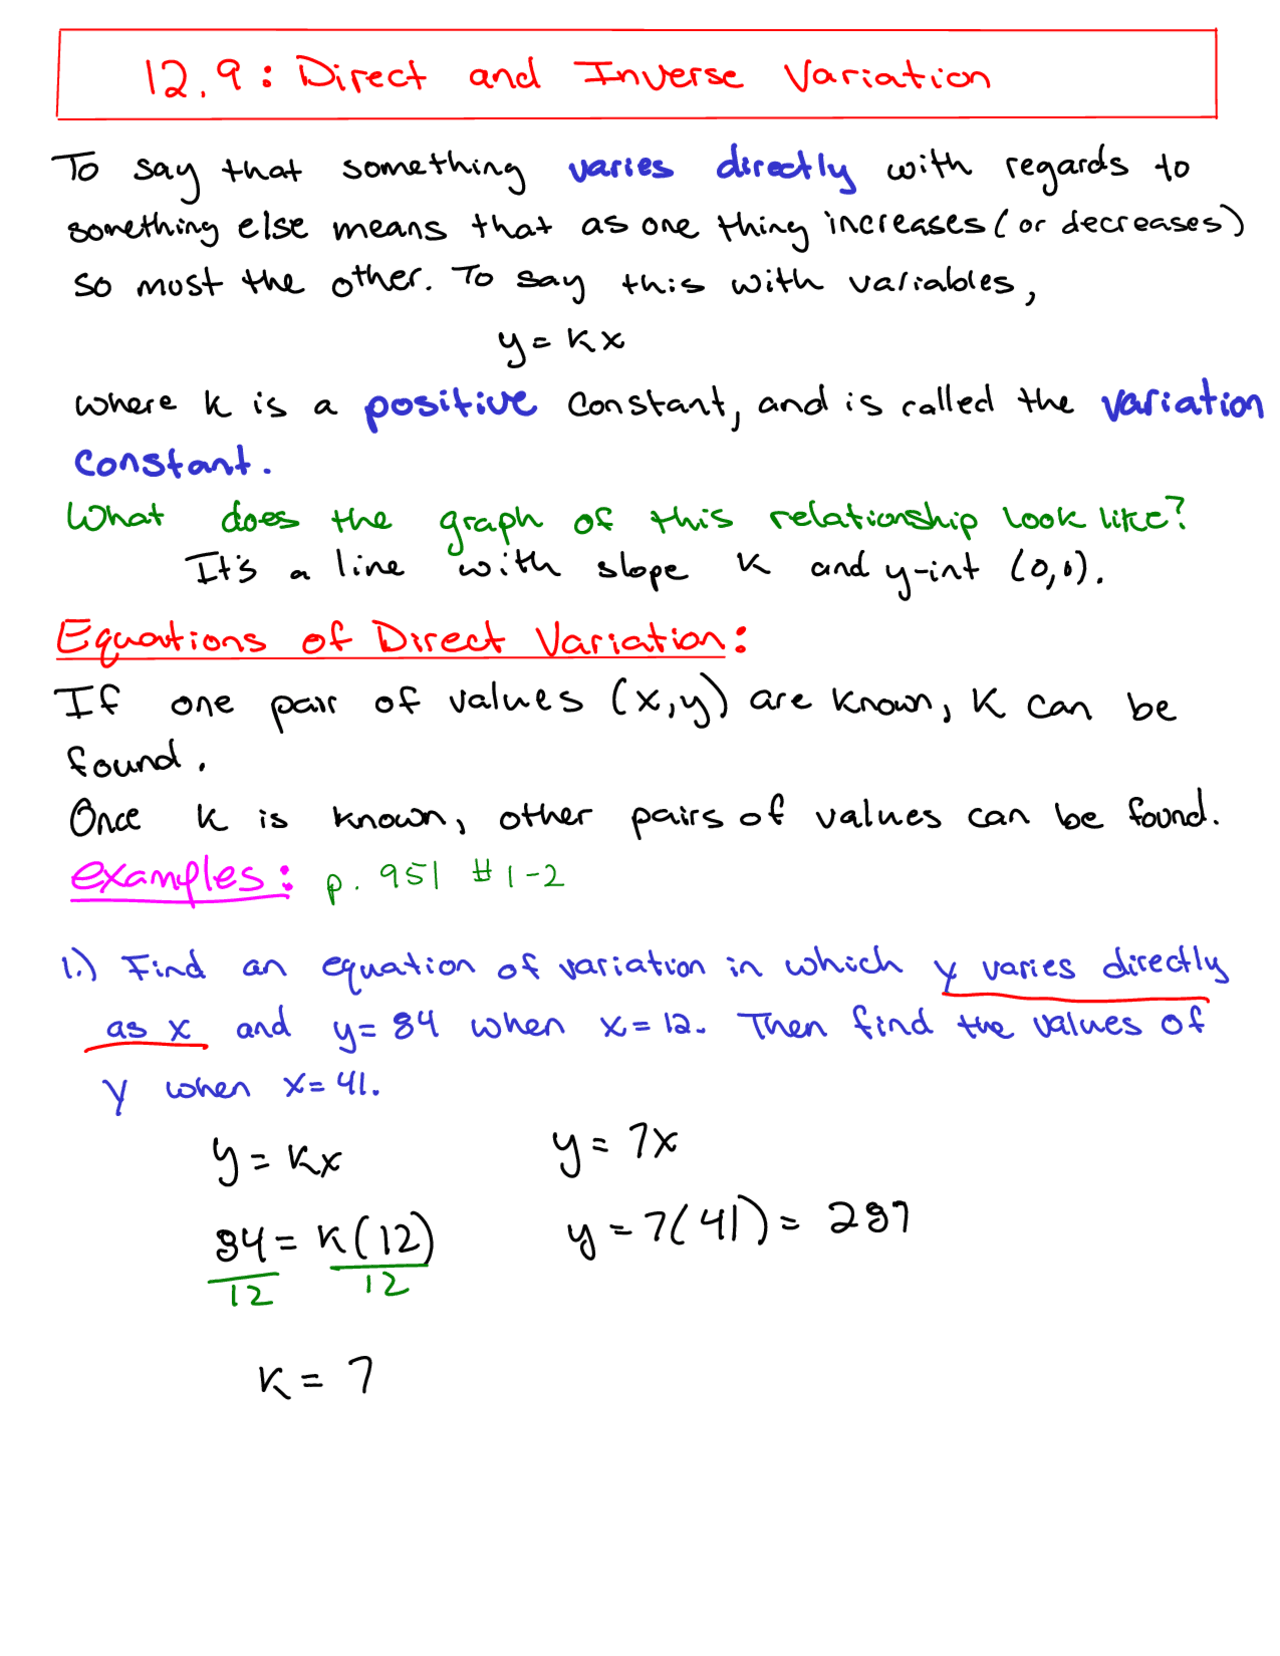 12.9: Direct and Inverse Variation
To say that something varies directly with regards to
something else means that as one thing increases (or decreases)
so must the other. To say this with variables,
y = kx
where k is a positive constant, and is called the variation
constant.
What does the graph of this relationship look like?
It's a line with slope k and y-int (0,0).
Equations of Direct Variation:
If one pair of values (x,y) are known, k can be
found.
Once k is known, other pairs of values can be found.
examples: p. 951 #1-2
1.) Find an equation of variation in which y varies directly
as x and y = 84 when x = 12. Then find the values of
y when x = 41.
y = kx
84 = k(12)
12 12
k = 7
y = 7x
y = 7(41) = 287